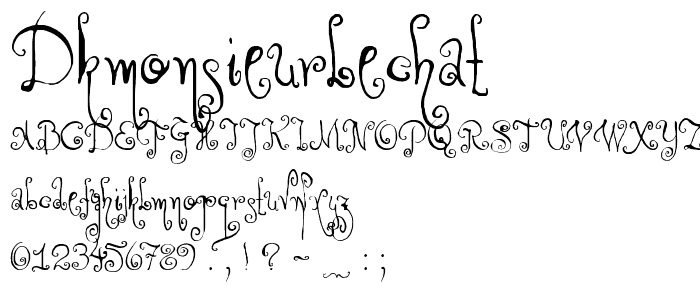 DkmonsieurLechat
ABCDEFGHIJKLMNOPQRSTUVWXYZ
abcdefghijklmnopqrstuvwxyz
0123456789 . , ! ? ~ _ : ;